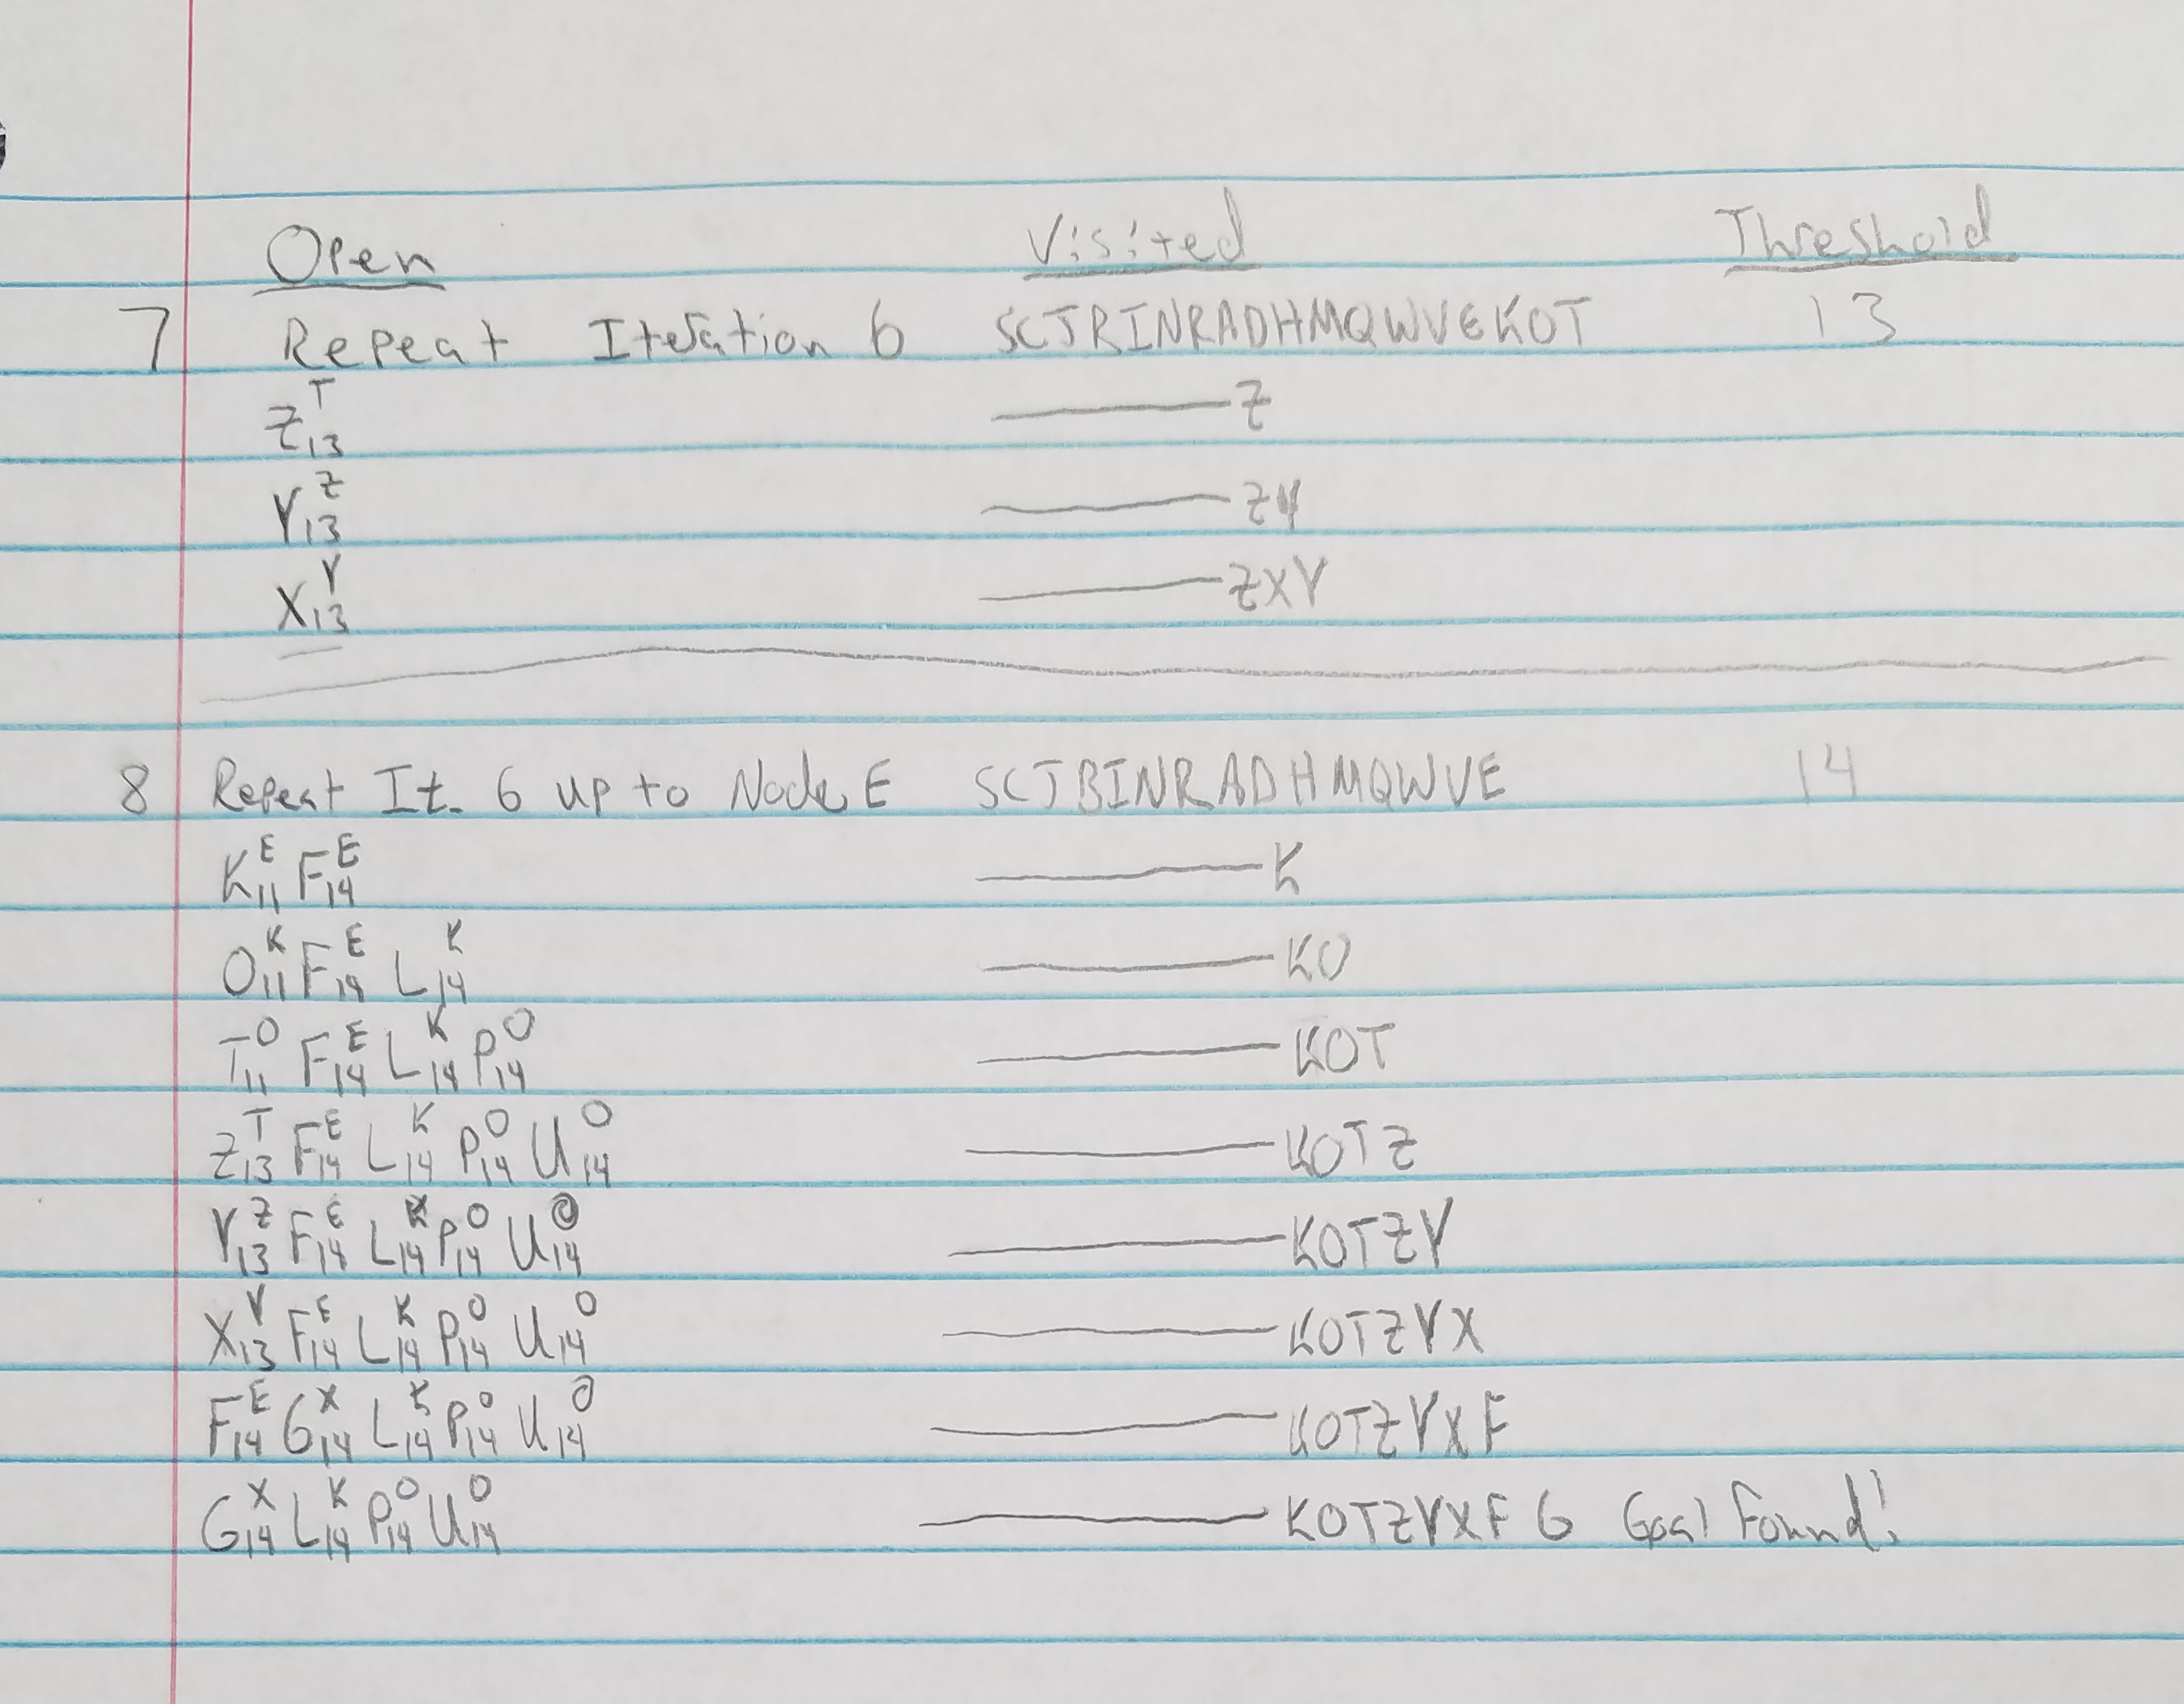 Open Visited Threshold
7 Repeat Iteration 6 SCJBINRADHMQWVEKOT 13
Z₁₃ᵀ ——— Z
Y₁₃ᶻ ——— ZY
X₁₃ʸ ——— ZXY
8 Repeat It. 6 up to Node E SCJBINRADHMQWVE 14
K₁₁ᴱ F₁₄ᴱ ——— K
O₁₁ᴷ F₁₄ᴱ L₁₄ᴷ ——— KO
T₁₁ᴼ F₁₄ᴱ L₁₄ᴷ P₁₄ᴼ ——— KOT
Z₁₃ᵀ F₁₄ᴱ L₁₄ᴷ P₁₄ᴼ U₁₄ᴼ ——— KOTZ
Y₁₃ᶻ F₁₄ᴱ L₁₄ᴷ P₁₄ᴼ U₁₄ᴼ ——— KOTZY
X₁₃ʸ F₁₄ᴱ L₁₄ᴷ P₁₄ᴼ U₁₄ᴼ ——— KOTZYX
F₁₄ᴱ G₁₄ˣ L₁₄ᴷ P₁₄ᴼ U₁₄ᴼ ——— KOTZYXF
G₁₄ˣ L₁₄ᴷ P₁₄ᴼ U₁₄ᴼ ——— KOTZYXFG Goal Found!